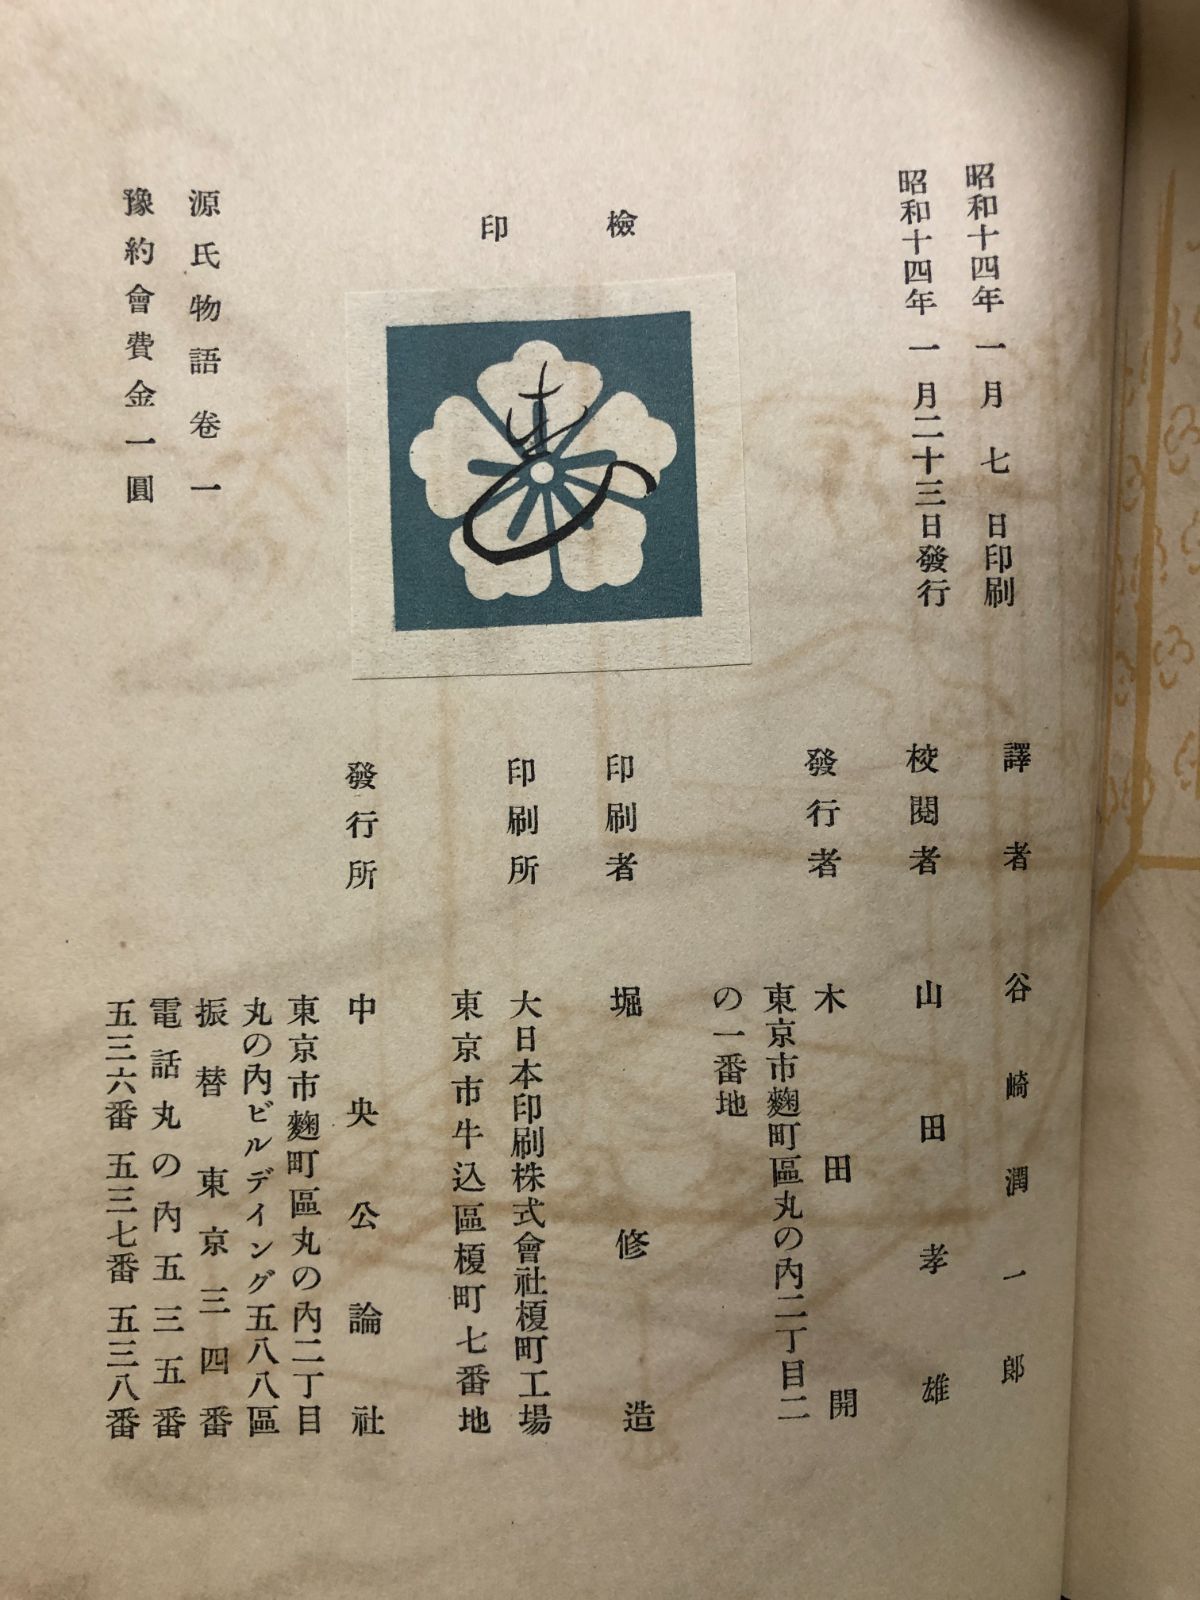 昭和十四年一月七日印刷
昭和十四年一月二十三日發行
檢印
源氏物語卷一
豫約會費金一圓
譯者 谷崎潤一郎
校閱者 山田孝雄
發行者 木田開
東京市麴町區丸の內二丁目二
の一番地
印刷者 堀修造
印刷所 大日本印刷株式會社榎町工場
東京市牛込區榎町七番地
發行所 中央公論社
東京市麴町區丸の內二丁目
丸の內ビルデイング五八八區
振替東京三四番
電話丸の內五三五番
五三六番五三七番五三八番